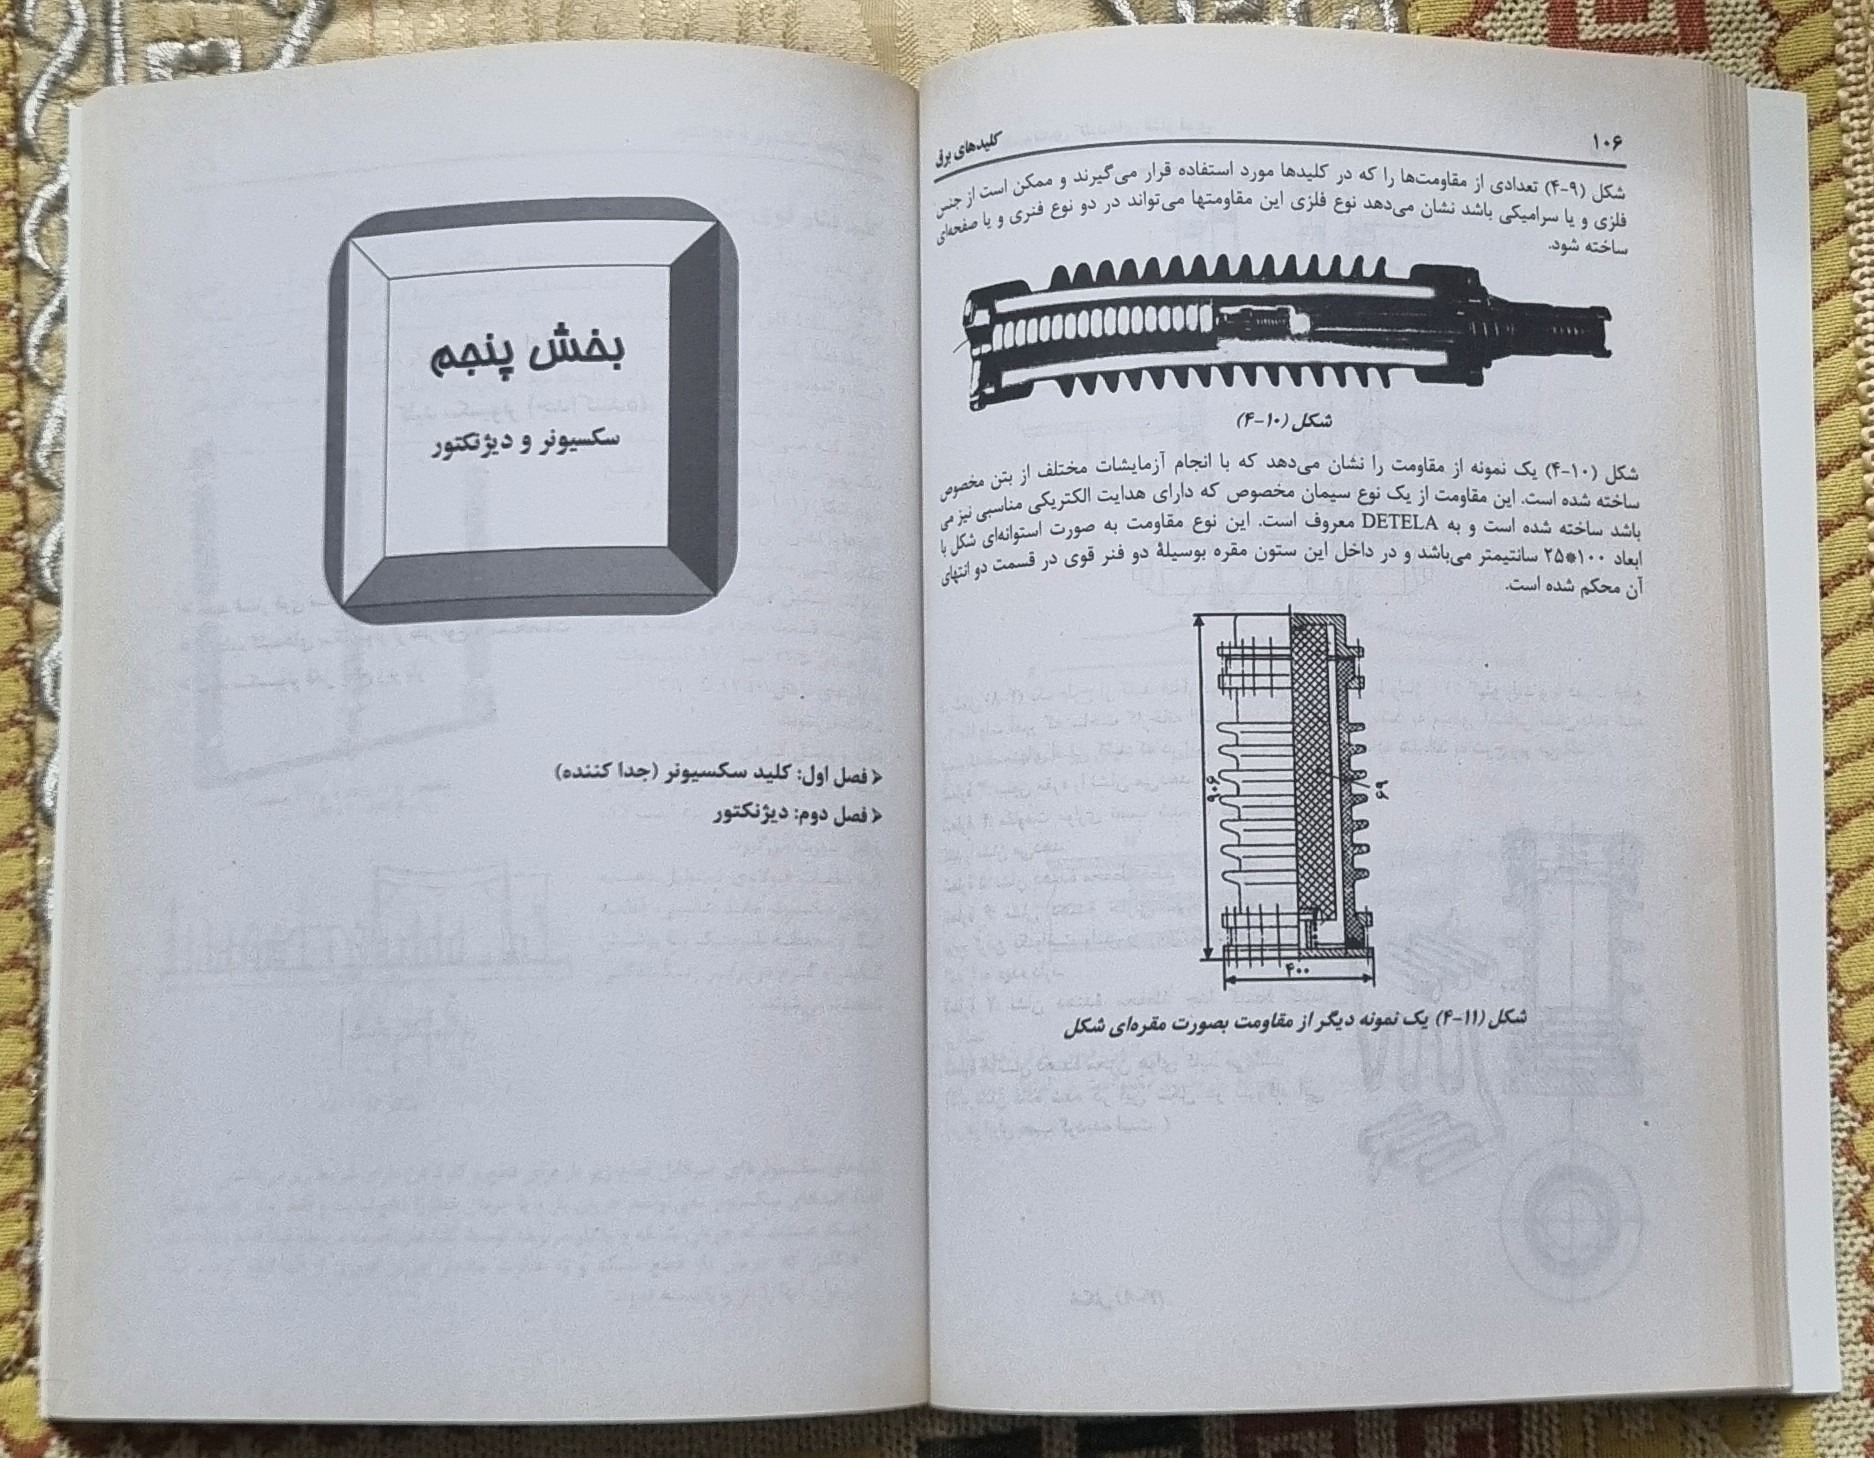 ۱۰۶
کلیدهای برق
شکل (۹-۴) تعدادی از مقاومت‌ها را که در کلیدها مورد استفاده قرار می‌گیرند و ممکن است از جنس
فلزی و یا سرامیکی باشد نشان می‌دهد نوع فلزی این مقاومتها می‌تواند در دو نوع فنری و یا صفحه‌ای
ساخته شود.
شکل (۱۰-۴)
شکل (۱۰-۴) یک نمونه از مقاومت را نشان می‌دهد که با انجام آزمایشات مختلف از بتن مخصوص
ساخته شده است. این مقاومت از یک نوع سیمان مخصوص که دارای هدایت الکتریکی مناسبی نیز می
باشد ساخته شده است و به DETELA معروف است. این نوع مقاومت به صورت استوانه‌ای شکل با
ابعاد ۱۰۰*۲۵ سانتیمتر می‌باشد و در داخل این ستون مقره بوسیلهٔ دو فنر قوی در قسمت دو انتهای
آن محکم شده است.
۹۰۶
۶۹
۴۰۰
شکل (۱۱-۴) یک نمونه دیگر از مقاومت بصورت مقره‌ای شکل
بخش پنجم
سکسیونر و دیژنکتور
فصل اول: کلید سکسیونر (جدا کننده)
فصل دوم: دیژنکتور